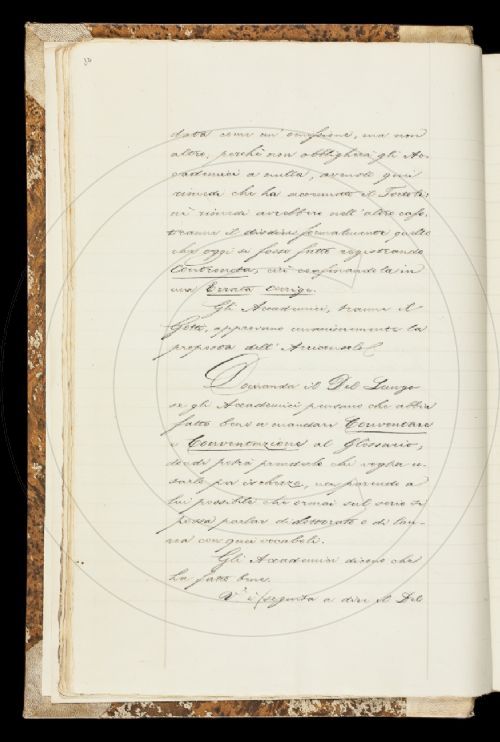 data come un' omissione, ma non
altro, perchè non obbligherà gli Ac-
cademici a nulla, avendo quei
rimedi che ha accennato il Tortoli;
nè rimedi avrebbero nell' altro caso,
tranne il disdire formalmente quello
che oggi si fosse fatto registrando
Controncta, cioè confinandola in
una Errata Corrige.
Gli Accademici, tranne il
Gotti, approvano unanimemente la
proposta dell' Arciconsolo.
Domanda il Del Lungo
se gli Accademici pensano che abbia
fatto bene a mandare Conventare
e Conventazione al Glossario,
donde potrà prenderle chi voglia u-
sarle per ischerzo, non parendo a
lui possibile che ormai sul serio si
possa parlar di dottorato o di lau-
rea con quei vocaboli.
Gli Accademici dicono che
ha fatto bene.
V' è (seguita a dire il Del